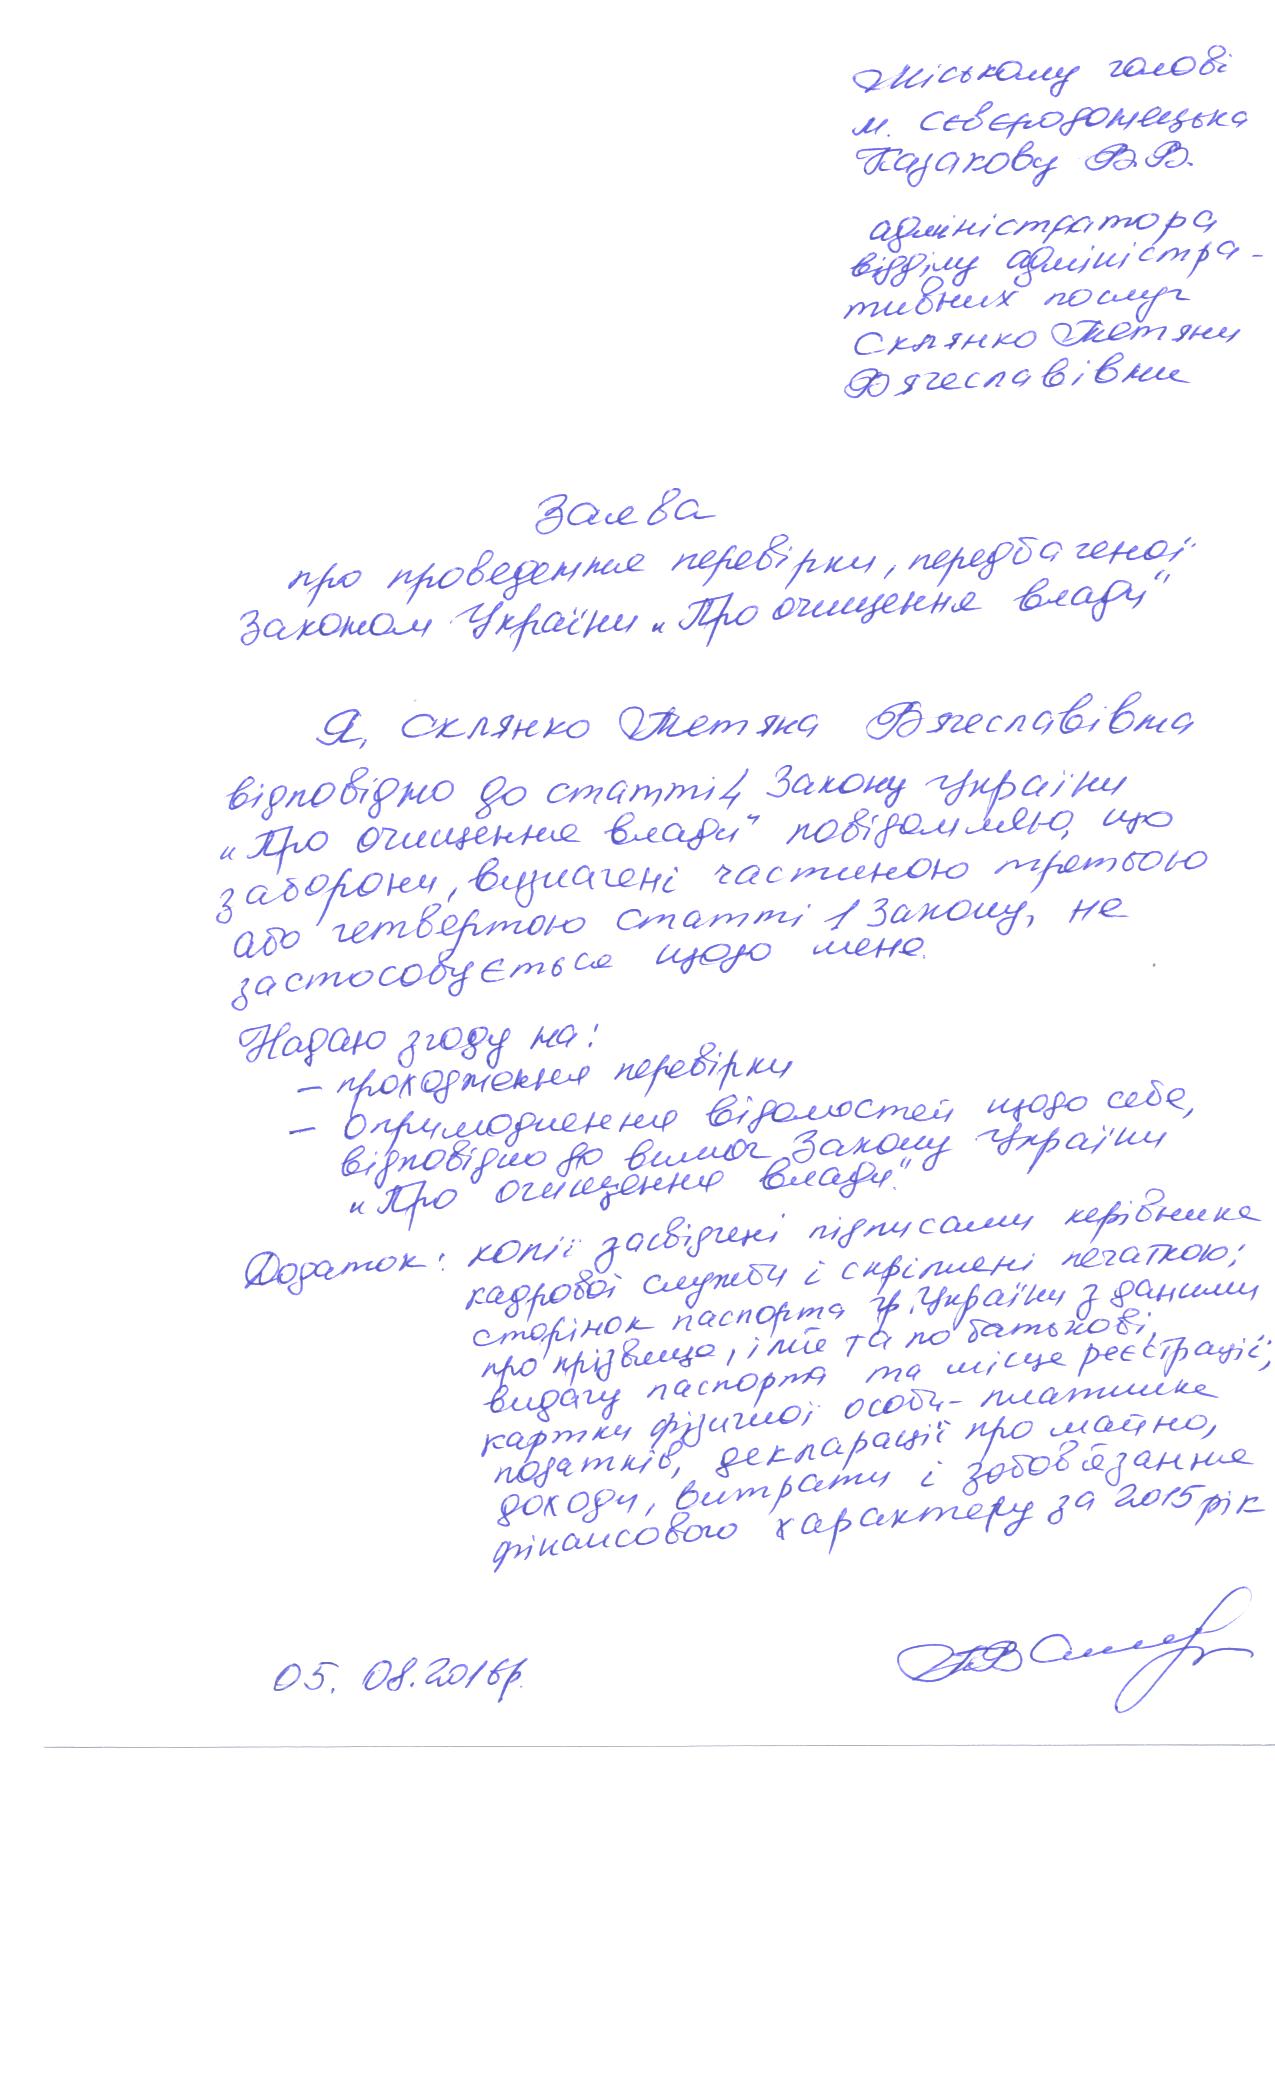 Міському голові
м. Сєвєродонецька
Казакову В.В.
адміністратора
відділу адміністра-
тивних послуг
Склянко Тетяни
Вячеславівни
Заява
про проведення перевірки, передбаченої
Законом України „Про очищення влади“
Я, Склянко Тетяна Вячеславівна
відповідно до статті 4 Закону України
„Про очищення влади“ повідомляю, що
заборони, визначені частиною третьою
або четвертою статті 1 Закону, не
застосовується щодо мене.
Надаю згоду на:
– проходження перевірки
– оприлюднення відомостей щодо себе,
відповідно до вимог Закону України
„Про очищення влади“.
Додаток: копії засвідчені підписами керівника
кадрової служби і скріплені печаткою:
сторінок паспорта гр. України з даними
про прізвище, ім'я та по батькові,
видачу паспорта та місце реєстрації,
картки фізичної особи-платника
податків, декларації про майно,
доходи, витрати і зобов'язання
фінансового характеру за 2015 рік
05. 08. 2016р.